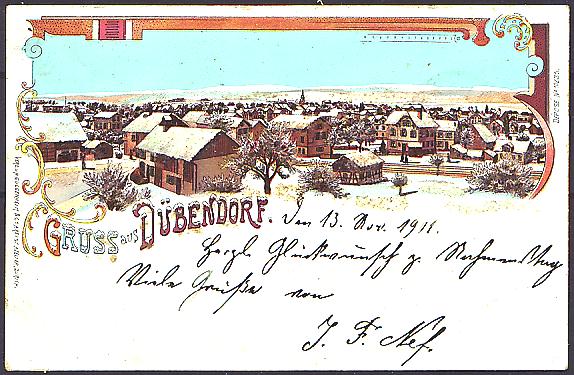 GRUSS aus DÜBENDORF.
Den 13. Nov. 1911.
Herzl Glückwunsch z. Nahmenstag
Viele Grüße von
J. F. Nef.